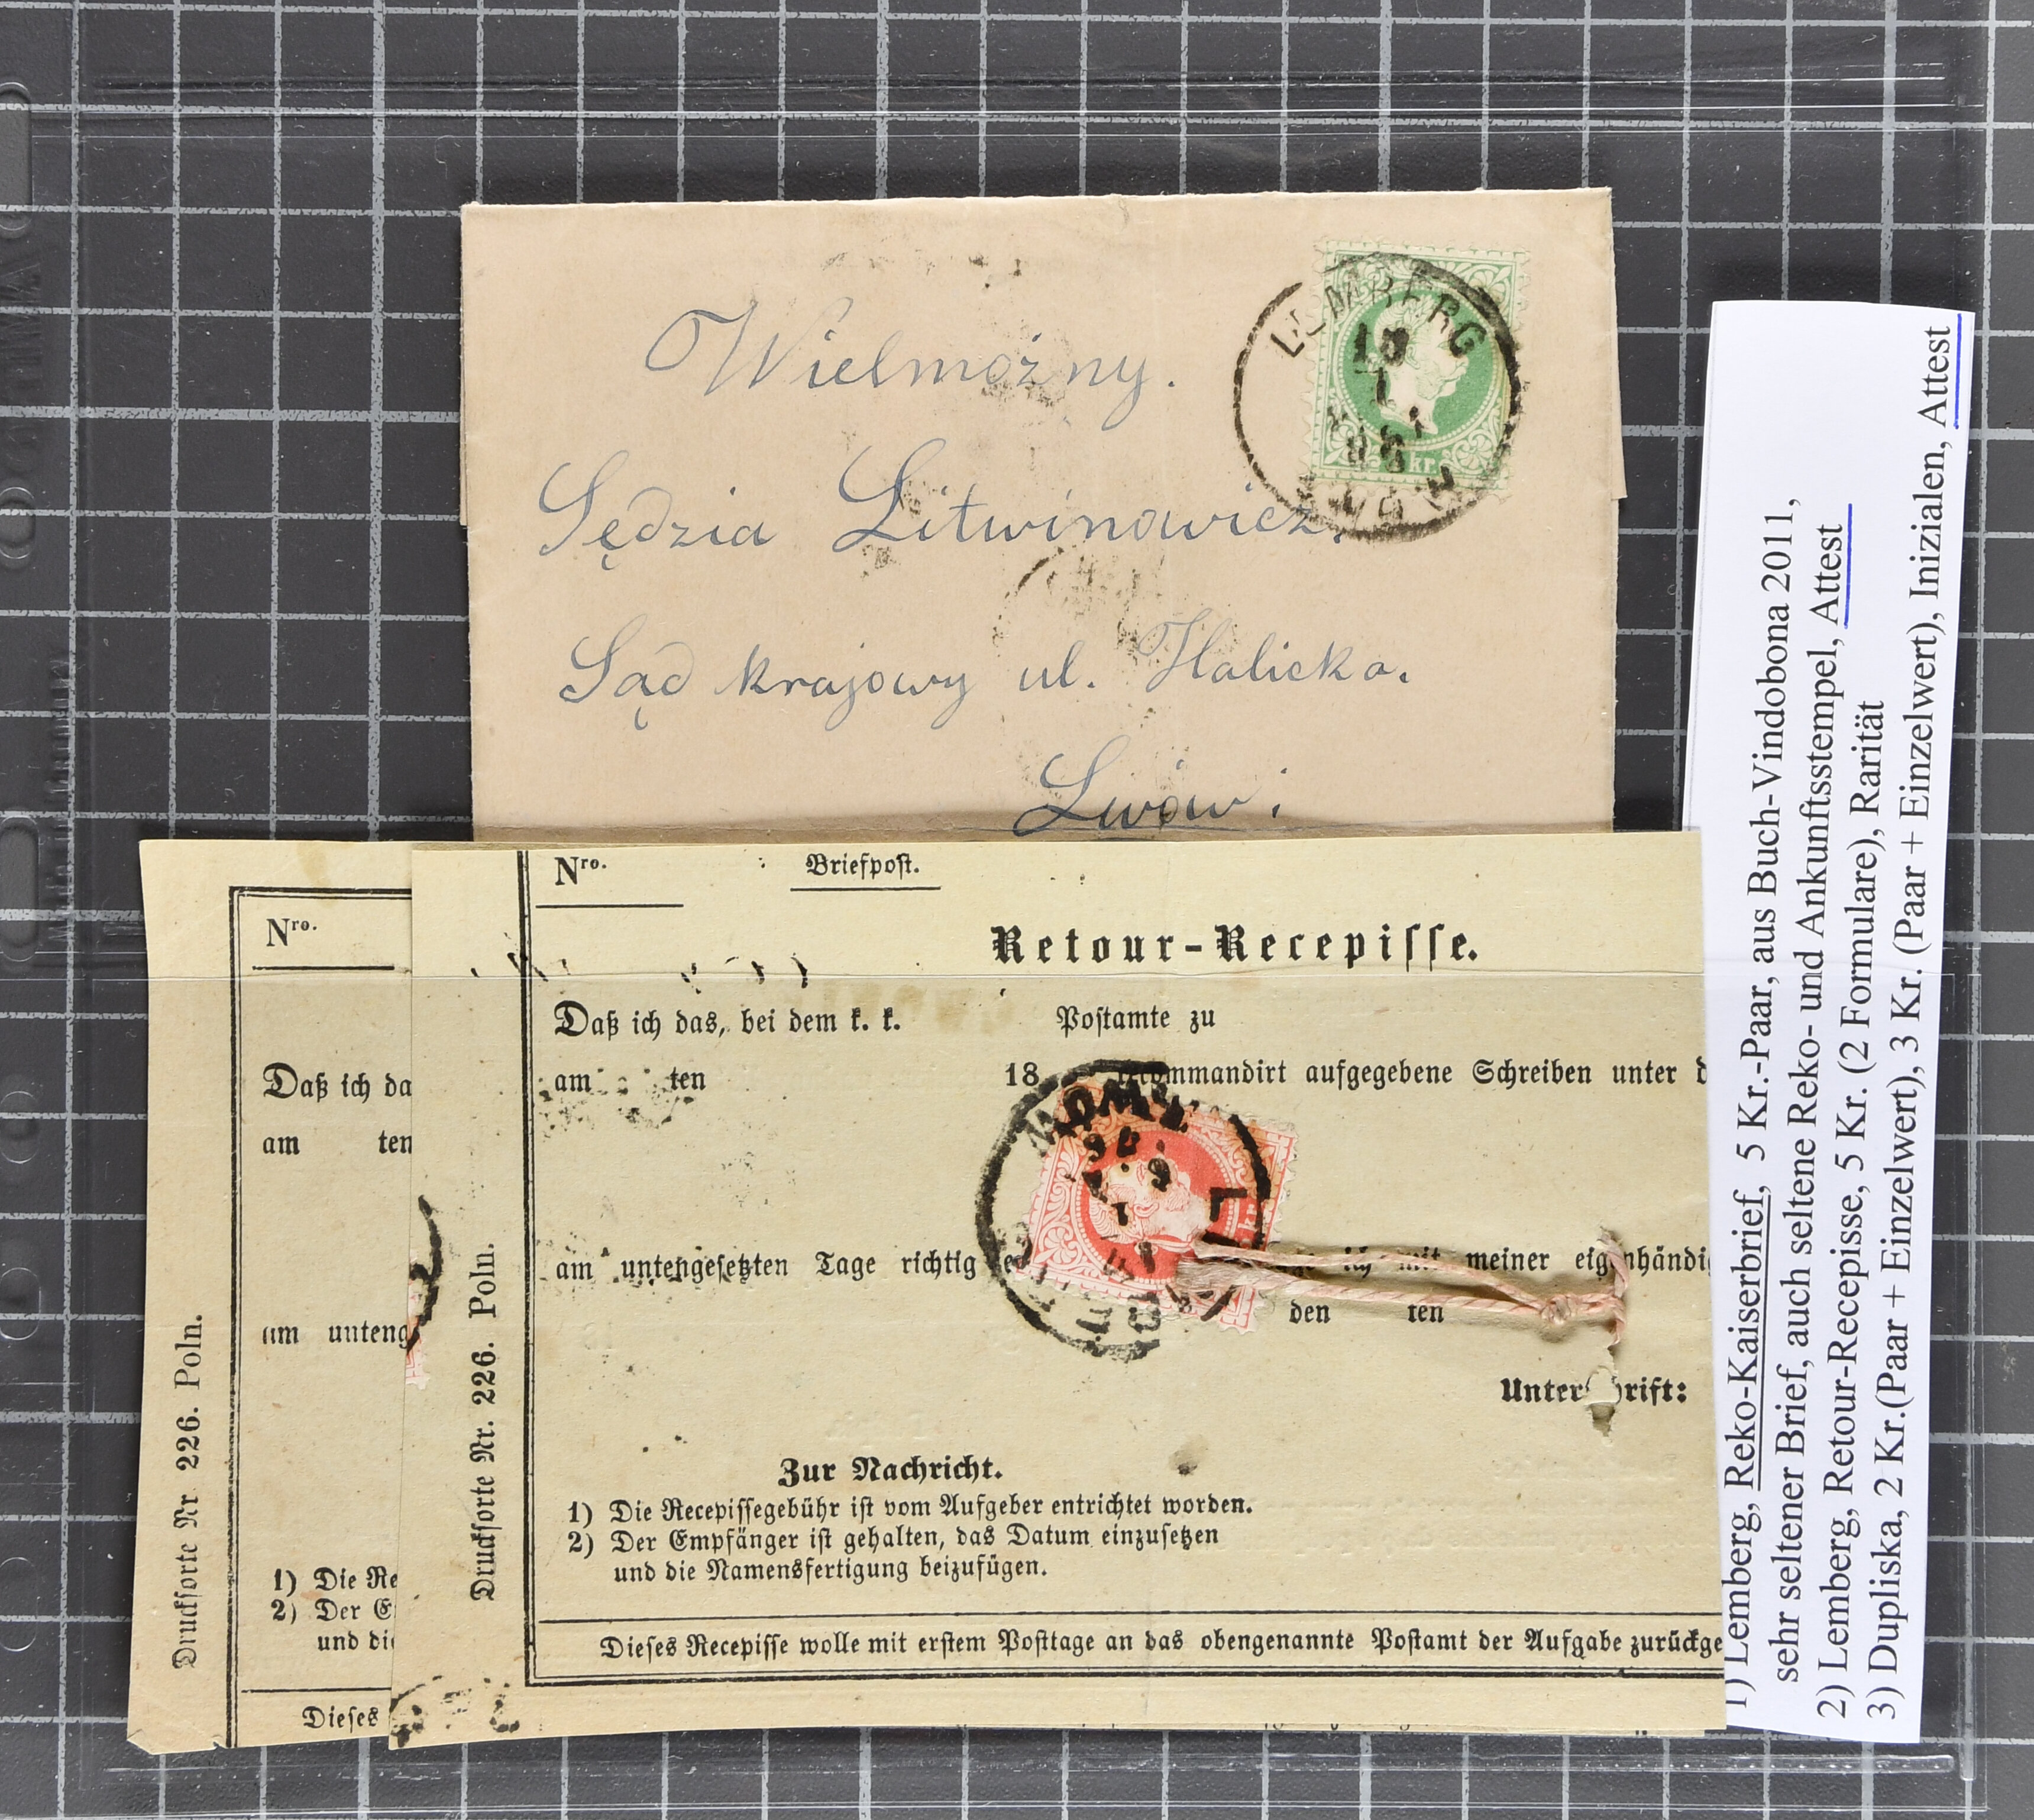 LEMBERG
kr.
Wielmożny.
Sędzia Litwinowicz.
Sąd krajowy ul. Halicka.
Lwów:
Nro.
Briefpost.
Retour-Recepisse.
Daß ich das, bei dem k. k. Postamte zu
am ten 18 recommandirt aufgegebene Schreiben unter d
am untengesetzten Tage richtig ich mit meiner eigenhändi
den ten
Unterschrift:
Zur Nachricht.
1) Die Recepissegebühr ist vom Aufgeber entrichtet worden.
2) Der Empfänger ist gehalten, das Datum einzusetzen
und die Namensfertigung beizufügen.
Dieses Recepisse wolle mit erstem Posttage an das obengenannte Postamt der Aufgabe zurückge
Drucksorte Nr. 226. Poln.
Nro.
Daß ich da
am ten
am unteng
1) Die Re
2) Der E
und die
Dieses
Drucksorte Nr 226. Poln.
1) Lemberg, Reko-Kaiserbrief, 5 Kr.-Paar, aus Buch-Vindobona 2011,
sehr seltener Brief, auch seltene Reko- und Ankunftsstempel, Attest
2) Lemberg, Retour-Recepisse, 5 Kr. (2 Formulare), Rarität
3) Dupliska, 2 Kr.(Paar + Einzelwert), 3 Kr. (Paar + Einzelwert), Inizialen, Attest